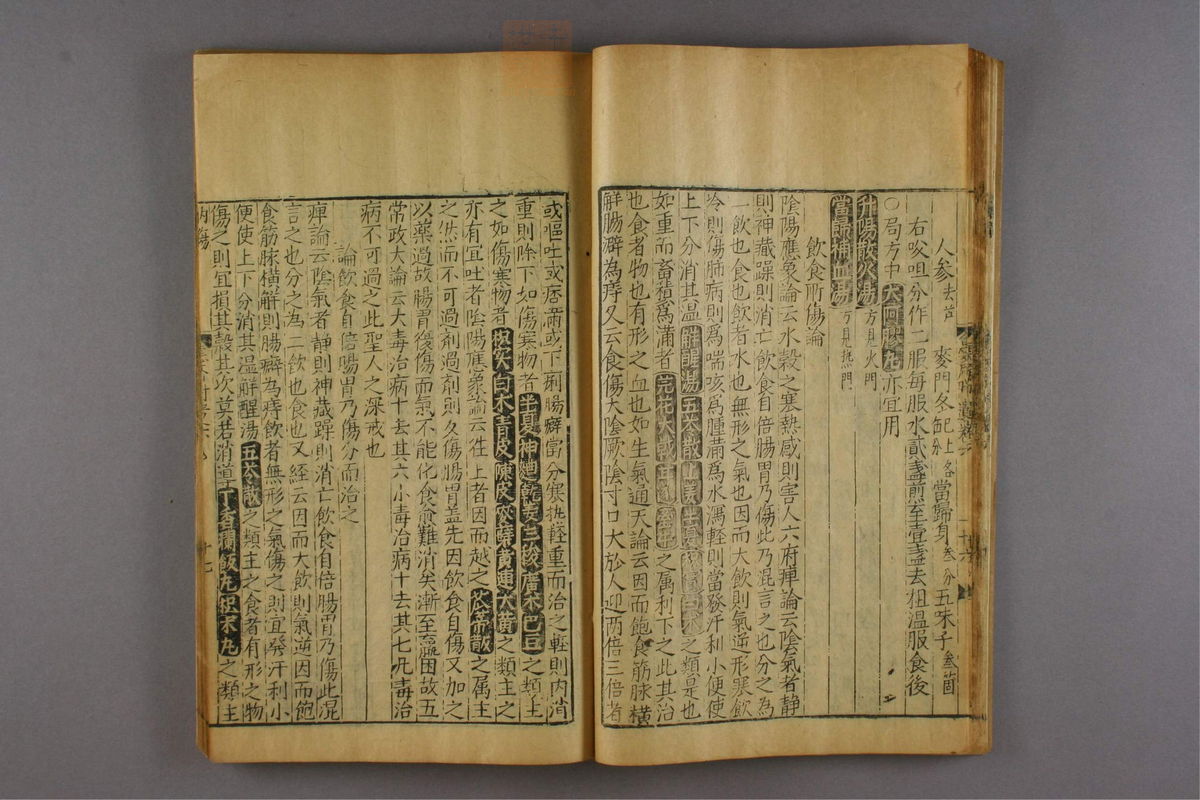 人參去芦 麥門冬 已上各 當歸身叁分 五味子叁箇
右㕮咀分作二服每服水貳盞煎至壹盞去柤溫服食後
○局方中大阿膠丸亦宜用
升陽散火湯方見火門
當歸補血湯方見熱門
飲食所傷論
陰陽應象論云水穀之寒熱感則害人六府痺論云陰氣者靜
則神藏躁則消亡飲食自倍腸胃乃傷此乃混言之也分之爲
二飲也食也飲者水也無形之氣也因而大飲則氣逆形寒飲
冷則傷肺病則爲喘咳爲腫滿爲水瀉輕則當發汗利小便使
上下分消其溫解酲湯五苓散生姜半夏枳實白朮之類是也
如重而畜積爲滿者芫花大戟甘遂牽牛之属利下之此其治
也食者物也有形之血也如生氣通天論云因而飽食筋脉橫
解腸澼爲痔又云食傷太陰厥陰寸口大於人迎两倍三倍者
或嘔吐或痞滿或下痢腸癖當分寒熱輕重而治之輕則内消
重則除下如傷寒物者半夏神麯乾姜三稜廣朮巴豆之類主
之如傷寒物者枳实白朮青皮陳皮麥蘗黄連大黄之類主之
亦有宜吐者陰陽應象論云在上者因而越之瓜蒂散之属主
之然而不可過剂過剂則久傷腸胃盖先因飲食自傷又加之
以藥過故腸胃復傷而氣不能化食愈難消矣漸至羸困故五
常政大論云大毒治病十去其六小毒治病十去其七凡毒治
病不可過之此聖人之深戒也
論飲食自倍腸胃乃傷分而治之
痺論云陰氣者靜則神藏躁則消亡飲食自倍腸胃乃傷此混
言之也分之為二飲也食也又経云因而大飲則氣逆因而飽
食筋脉橫解則腸癖為痔飲者無形之氣傷之則宜發汗利小
便使上下分消其溫解醒湯五苓散之類主之食者有形之物
傷之則宜損其穀其次莫若消導丁香爛飯丸枳朮丸之類主
内傷
十七